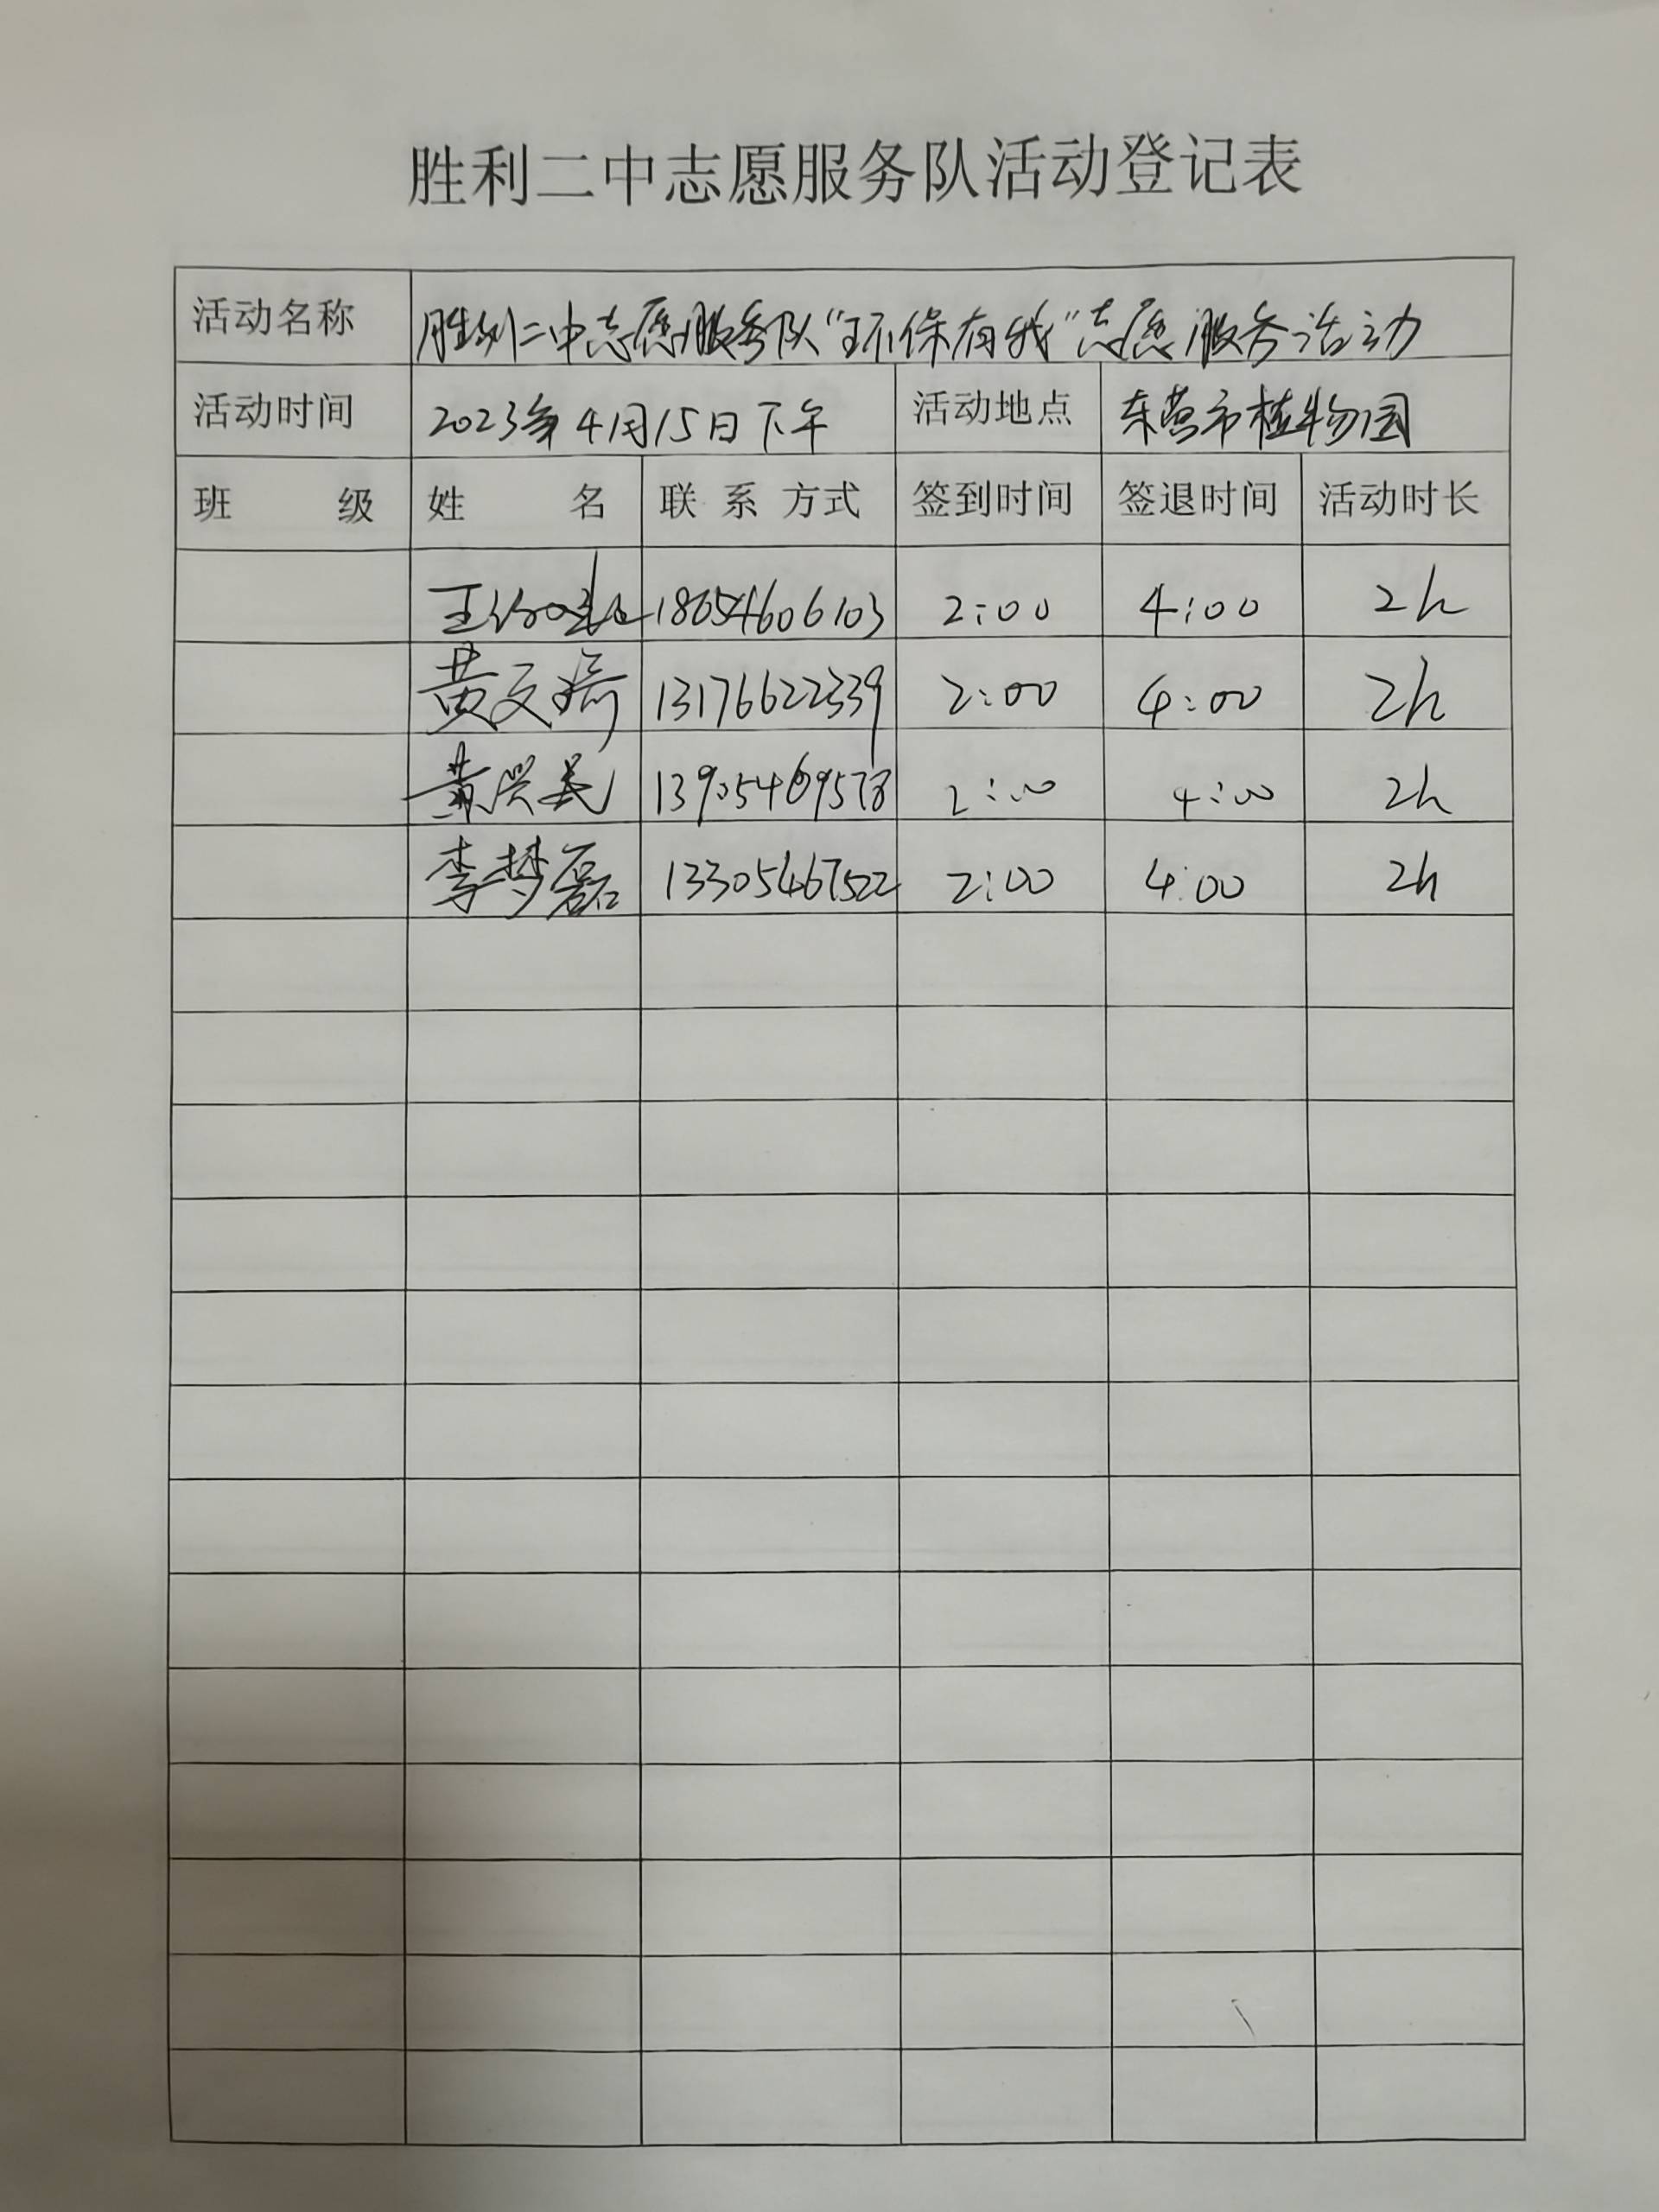 胜利二中志愿服务队活动登记表
活动名称 胜利二中志愿服务队“环保有我”志愿服务活动
活动时间 2023年4月15日下午 活动地点 东营市植物园
班 级 姓 名 联系方式 签到时间 签退时间 活动时长
王 18654606103 2:00 4:00 2h
黄文琦 13176622339 2:00 4:00 2h
黄兴民 2:00 4:00 2h
李梦磊 13305467522 2:00 4:00 2h